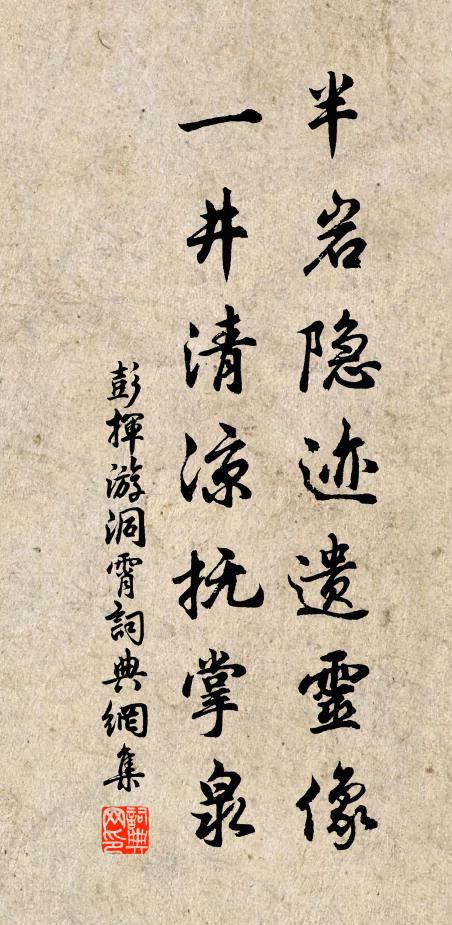 半岩隐迹遗靈像
一井清涼抚掌泉
彭揮游洞霄詞典網集
詞典网印